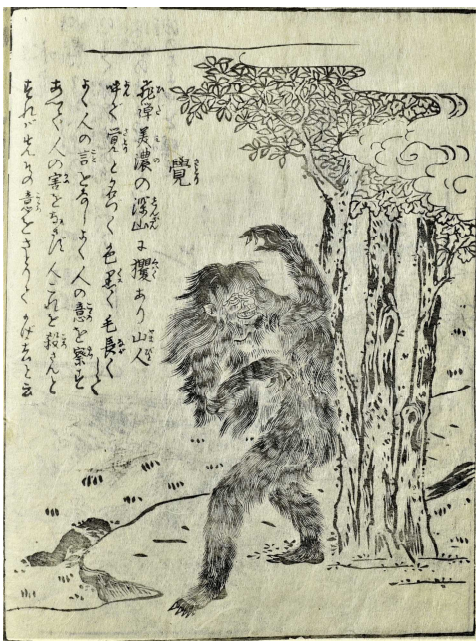 覺
飛彈美濃の深山に玃あり山人
呼で覺と名づく色黒く毛長くして
よく人の言をなしよく人の意を察す
あへて人の害をなさず人これを殺さんと
すれば先その意をさとりてにげ去と云